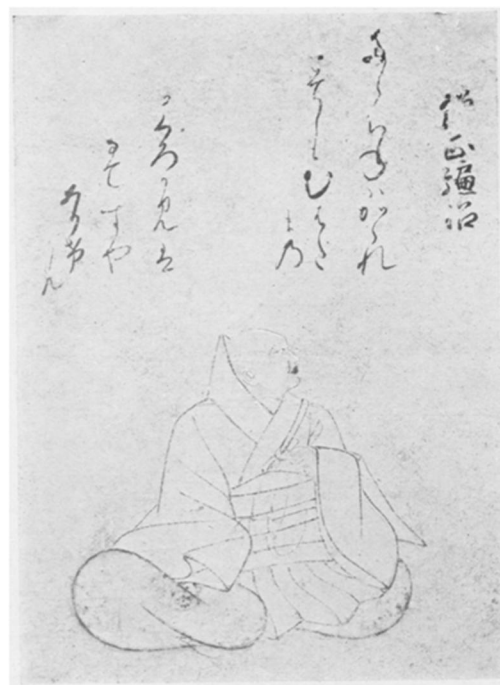 僧正遍昭
たらちねハかゝれ
とてしもむはた
まの
わかくろかみを
なてすや
ありけん